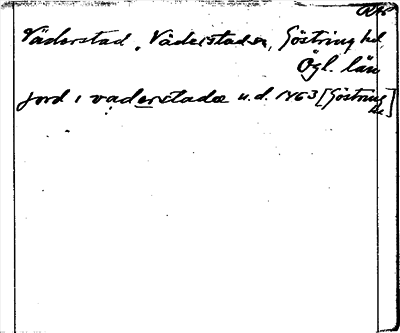 Väderstad, Väderstads sn, Göstring hd,
Ögl. län
jord i vaderstada u.d. 1463 [Göstring
hd]